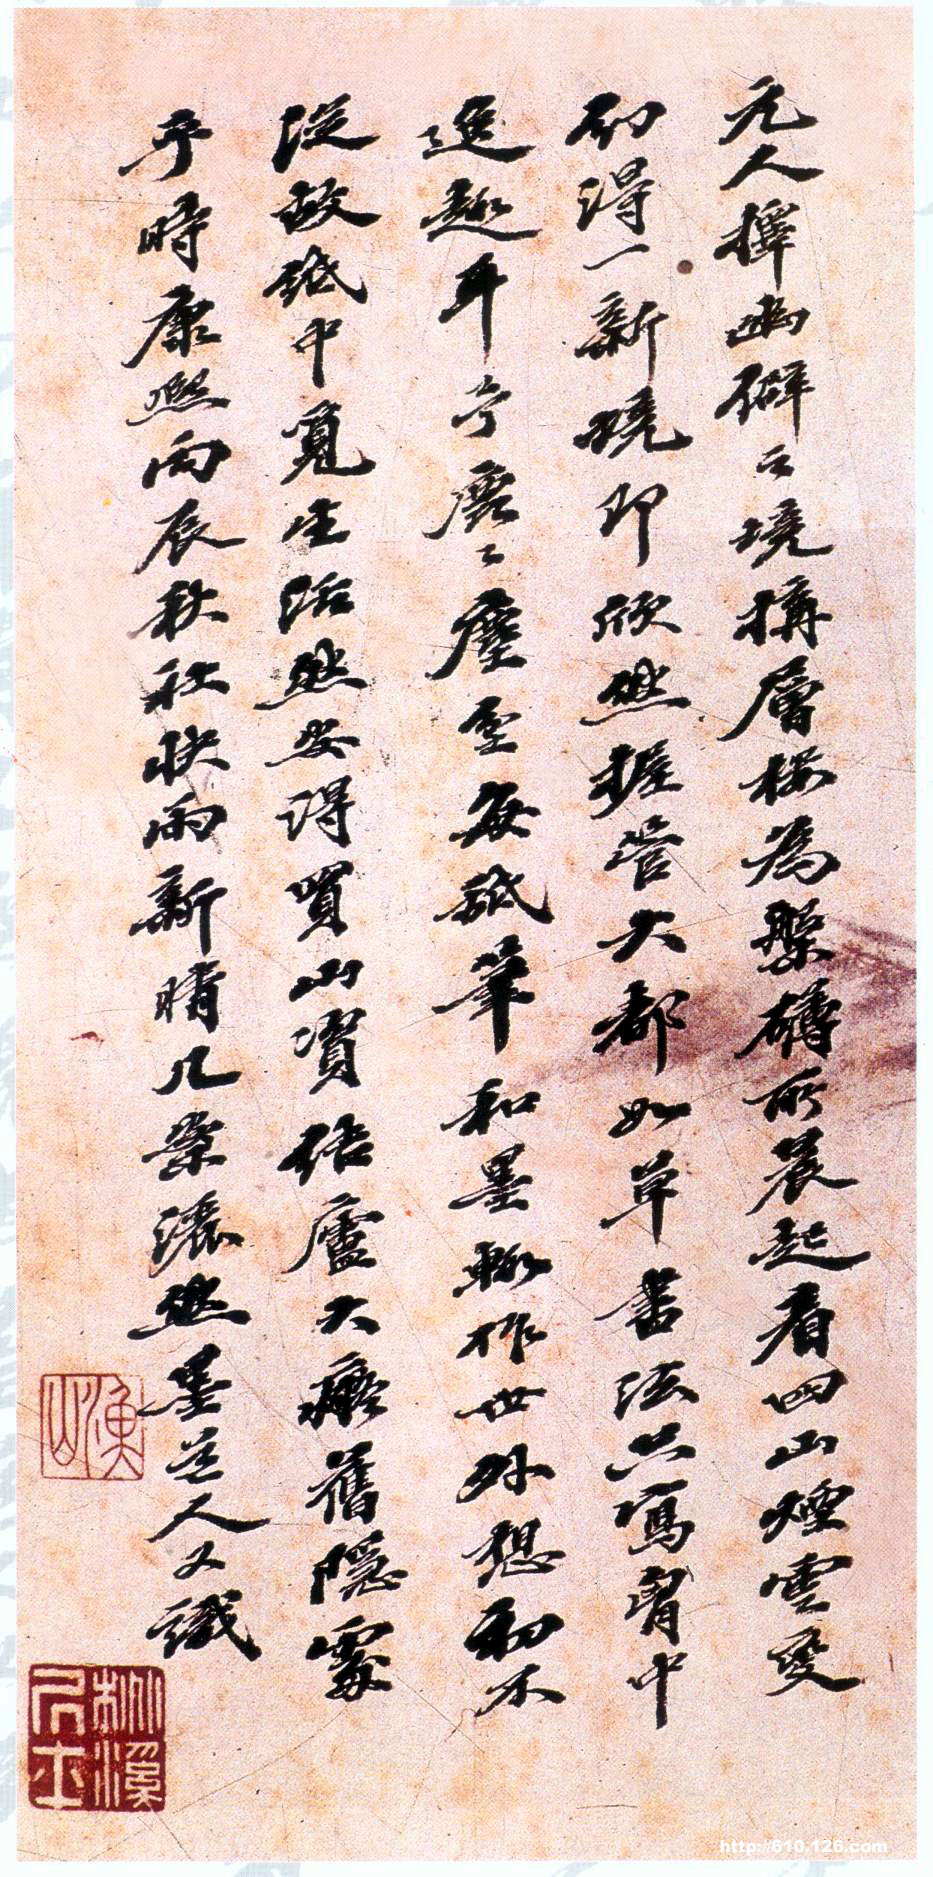 元人擇幽僻之境搆層樓為槃礴所晨起看四山煙雲變
幻得一新境即欣然握管大都如草書法只寫胸中
逸趣耳予鹿鹿塵每舐筆和墨輒作世外想初不
從故紙中覓生活然安得買山資結廬大癡舊隱處
乎時康熙丙辰秋社快雨新晴几案灑然墨道人又識
漁山
桃溪居士
http://610.126.com